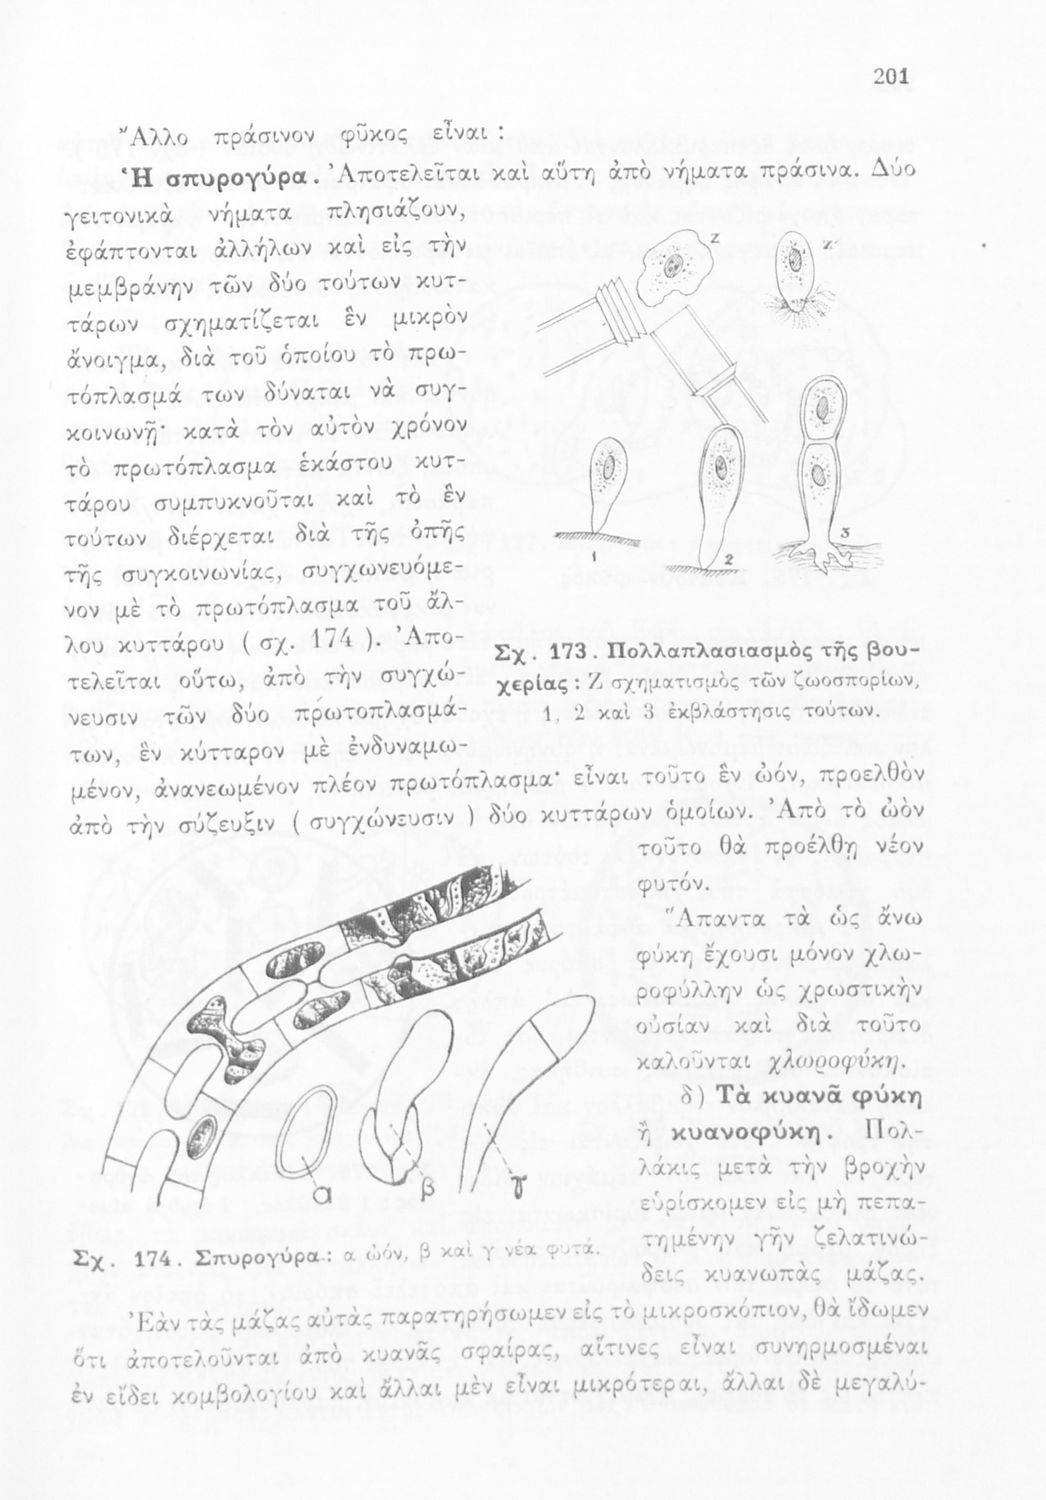 201
Ἄλλο πράσινον φῦκος εἶναι :
Ἡ σπυρογύρα. Ἀποτελεῖται καὶ αὕτη ἀπὸ νήματα πράσινα. Δύο
γειτονικὰ νήματα πλησιάζουν,
ἐφάπτονται ἀλλήλων καὶ εἰς τὴν
μεμβράνην τῶν δύο τούτων κυτ-
τάρων σχηματίζεται ἓν μικρὸν
ἄνοιγμα, διὰ τοῦ ὁποίου τὸ πρω-
τόπλασμά των δύναται νὰ συγ-
κοινωνῇ· κατὰ τὸν αὐτὸν χρόνον
τὸ πρωτόπλασμα ἑκάστου κυτ-
τάρου συμπυκνοῦται καὶ τὸ ἓν
τούτων διέρχεται διὰ τῆς ὀπῆς
τῆς συγκοινωνίας, συγχωνευόμε-
νον μὲ τὸ πρωτόπλασμα τοῦ ἄλ-
λου κυττάρου ( σχ. 174 ). Ἀπο-
τελεῖται οὕτω, ἀπὸ τὴν συγχώ-
νευσιν τῶν δύο πρωτοπλασμά-
των, ἓν κύτταρον μὲ ἐνδυναμω-
μένον, ἀνανεωμένον πλέον πρωτόπλασμα· εἶναι τοῦτο ἓν ᾠόν, προελθὸν
ἀπὸ τὴν σύζευξιν ( συγχώνευσιν ) δύο κυττάρων ὁμοίων. Ἀπὸ τὸ ᾠὸν
τοῦτο θὰ προέλθῃ νέον
φυτόν.
Ἅπαντα τὰ ὡς ἄνω
φύκη ἔχουσι μόνον χλω-
ροφύλλην ὡς χρωστικὴν
οὐσίαν καὶ διὰ τοῦτο
καλοῦνται χλωροφύκη.
δ) Τὰ κυανᾶ φύκη
ἢ κυανοφύκη. Πολ-
λάκις μετὰ τὴν βροχὴν
εὑρίσκομεν εἰς μὴ πεπα-
τημένην γῆν ζελατινώ-
δεις κυανωπὰς μάζας.
Ἐὰν τὰς μάζας αὐτὰς παρατηρήσωμεν εἰς τὸ μικροσκόπιον, θὰ ἴδωμεν
ὅτι ἀποτελοῦνται ἀπὸ κυανᾶς σφαίρας, αἵτινες εἶναι συνηρμοσμέναι
ἐν εἴδει κομβολογίου καὶ ἄλλαι μὲν εἶναι μικρότεραι, ἄλλαι δὲ μεγαλύ-
Z
Z'
1
2
3
Σχ. 173. Πολλαπλασιασμὸς τῆς βου-
χερίας : Ζ σχηματισμὸς τῶν ζωοσπορίων,
1, 2 καὶ 3 ἐκβλάστησις τούτων.
α
β
γ
Σχ. 174. Σπυρογύρα : α ᾠόν, β καὶ γ νέα φυτά.